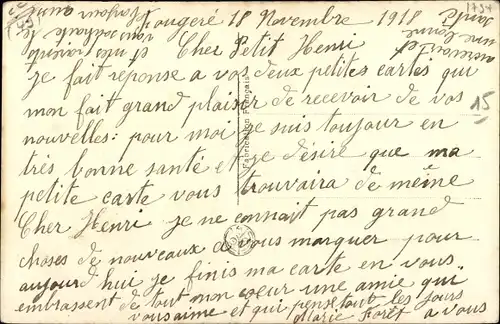 Fougeré 18 Novembre 1918
Cher Petit Henri
Je fait réponse a vos deux petites cartes qui
mon fait grand plaisir de recevoir de vos
nouvelles: pour moi je suis toujour en
très bonne santé et je désire que ma
petite carte vous trouvaira de même
Cher Henri je ne connait pas grand
choses de nouveaux de vous marquer pour
aujourd hui je finis ma carte en vous
embrassent de tout mon coeur une amie qui
vous aime et qui pense tout les jours
a vous
Marie Forêt
Fabrication Française
1754
15